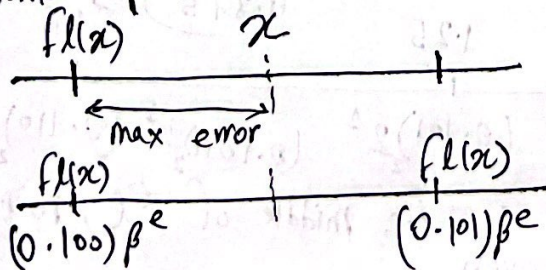 fl(x) x
max error
fl(x) fl(x)
(0.100) β^e (0.101) β^e